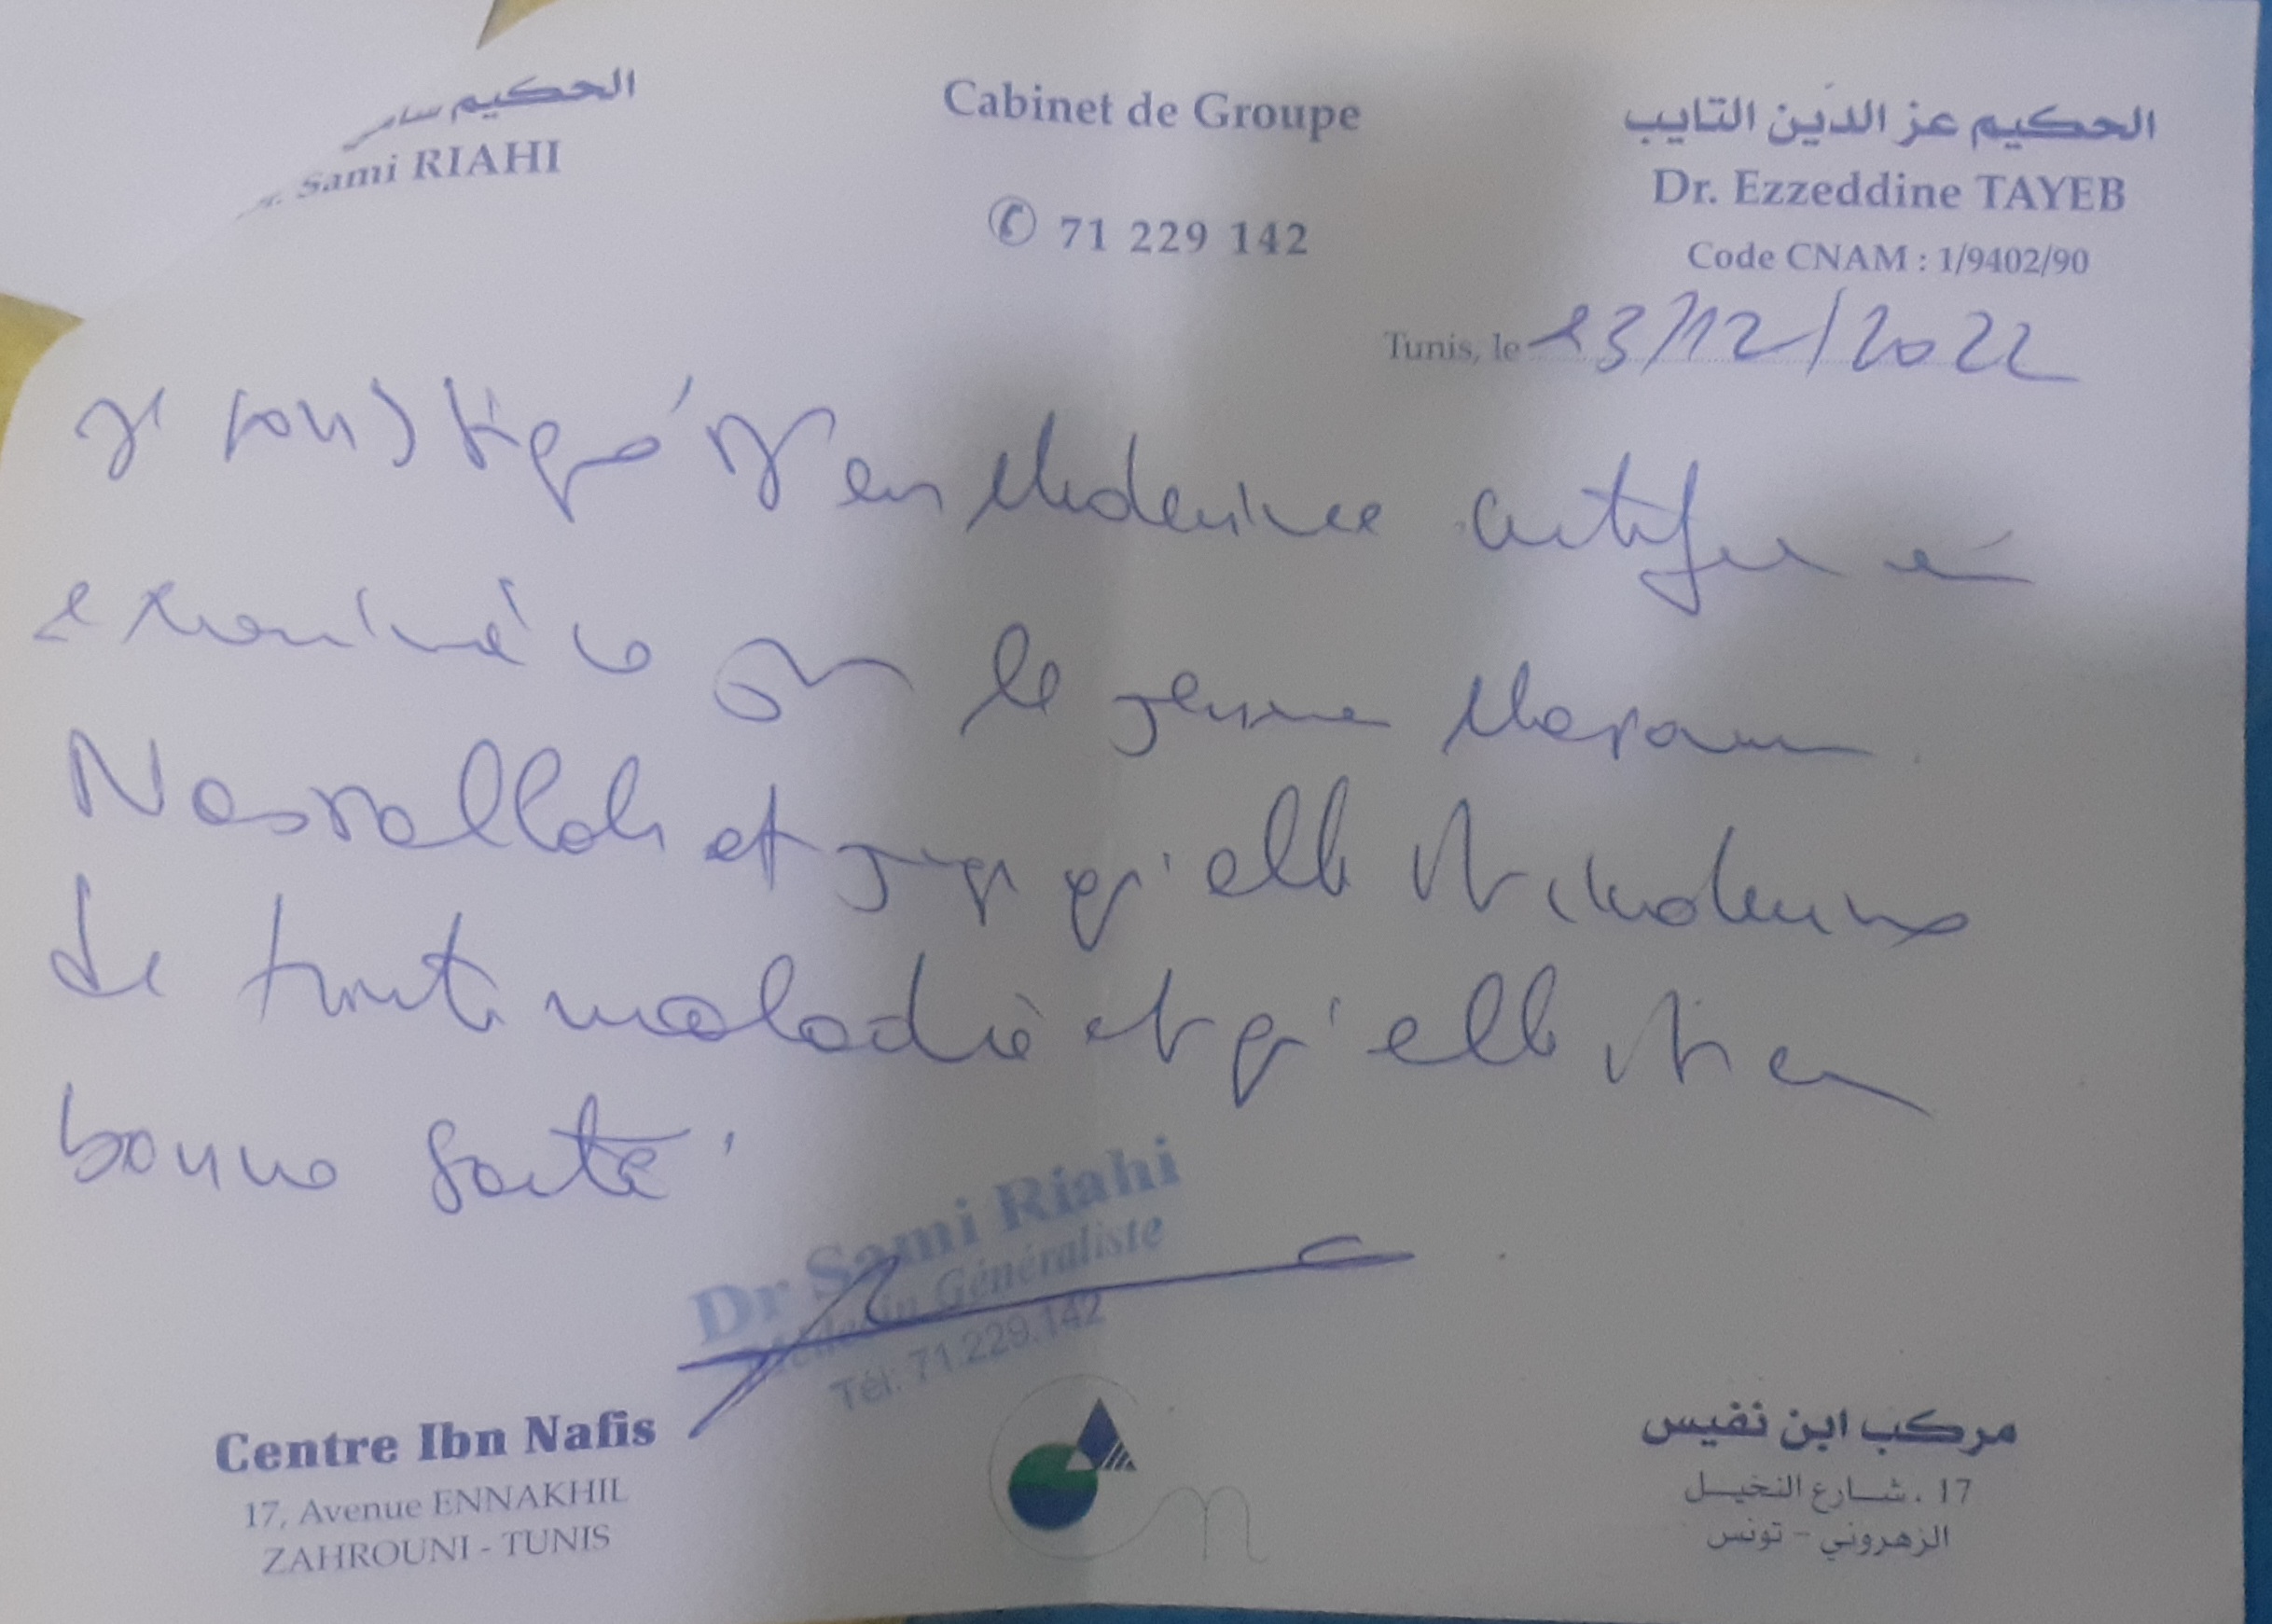 الحكيم سامي
Sami RIAHI
Cabinet de Groupe
71 229 142
الحكيم عز الدين التايب
Dr. Ezzeddine TAYEB
Code CNAM : 1/9402/90
Tunis, le 13/12/2022
Je soussigné Dr en Médecine certifie avoir
examiné ce jour la jeune Maram
Nasrallah et juge qu'elle est indemne
de toute maladie et qu'elle est en
bonne santé.
Dr Sami Riahi
Médecin Généraliste
Tél: 71.229.142
Centre Ibn Nafis
17, Avenue ENNAKHIL
ZAHROUNI - TUNIS
مركب ابن نفيس
17 ، شارع النخيل
الزهروني - تونس